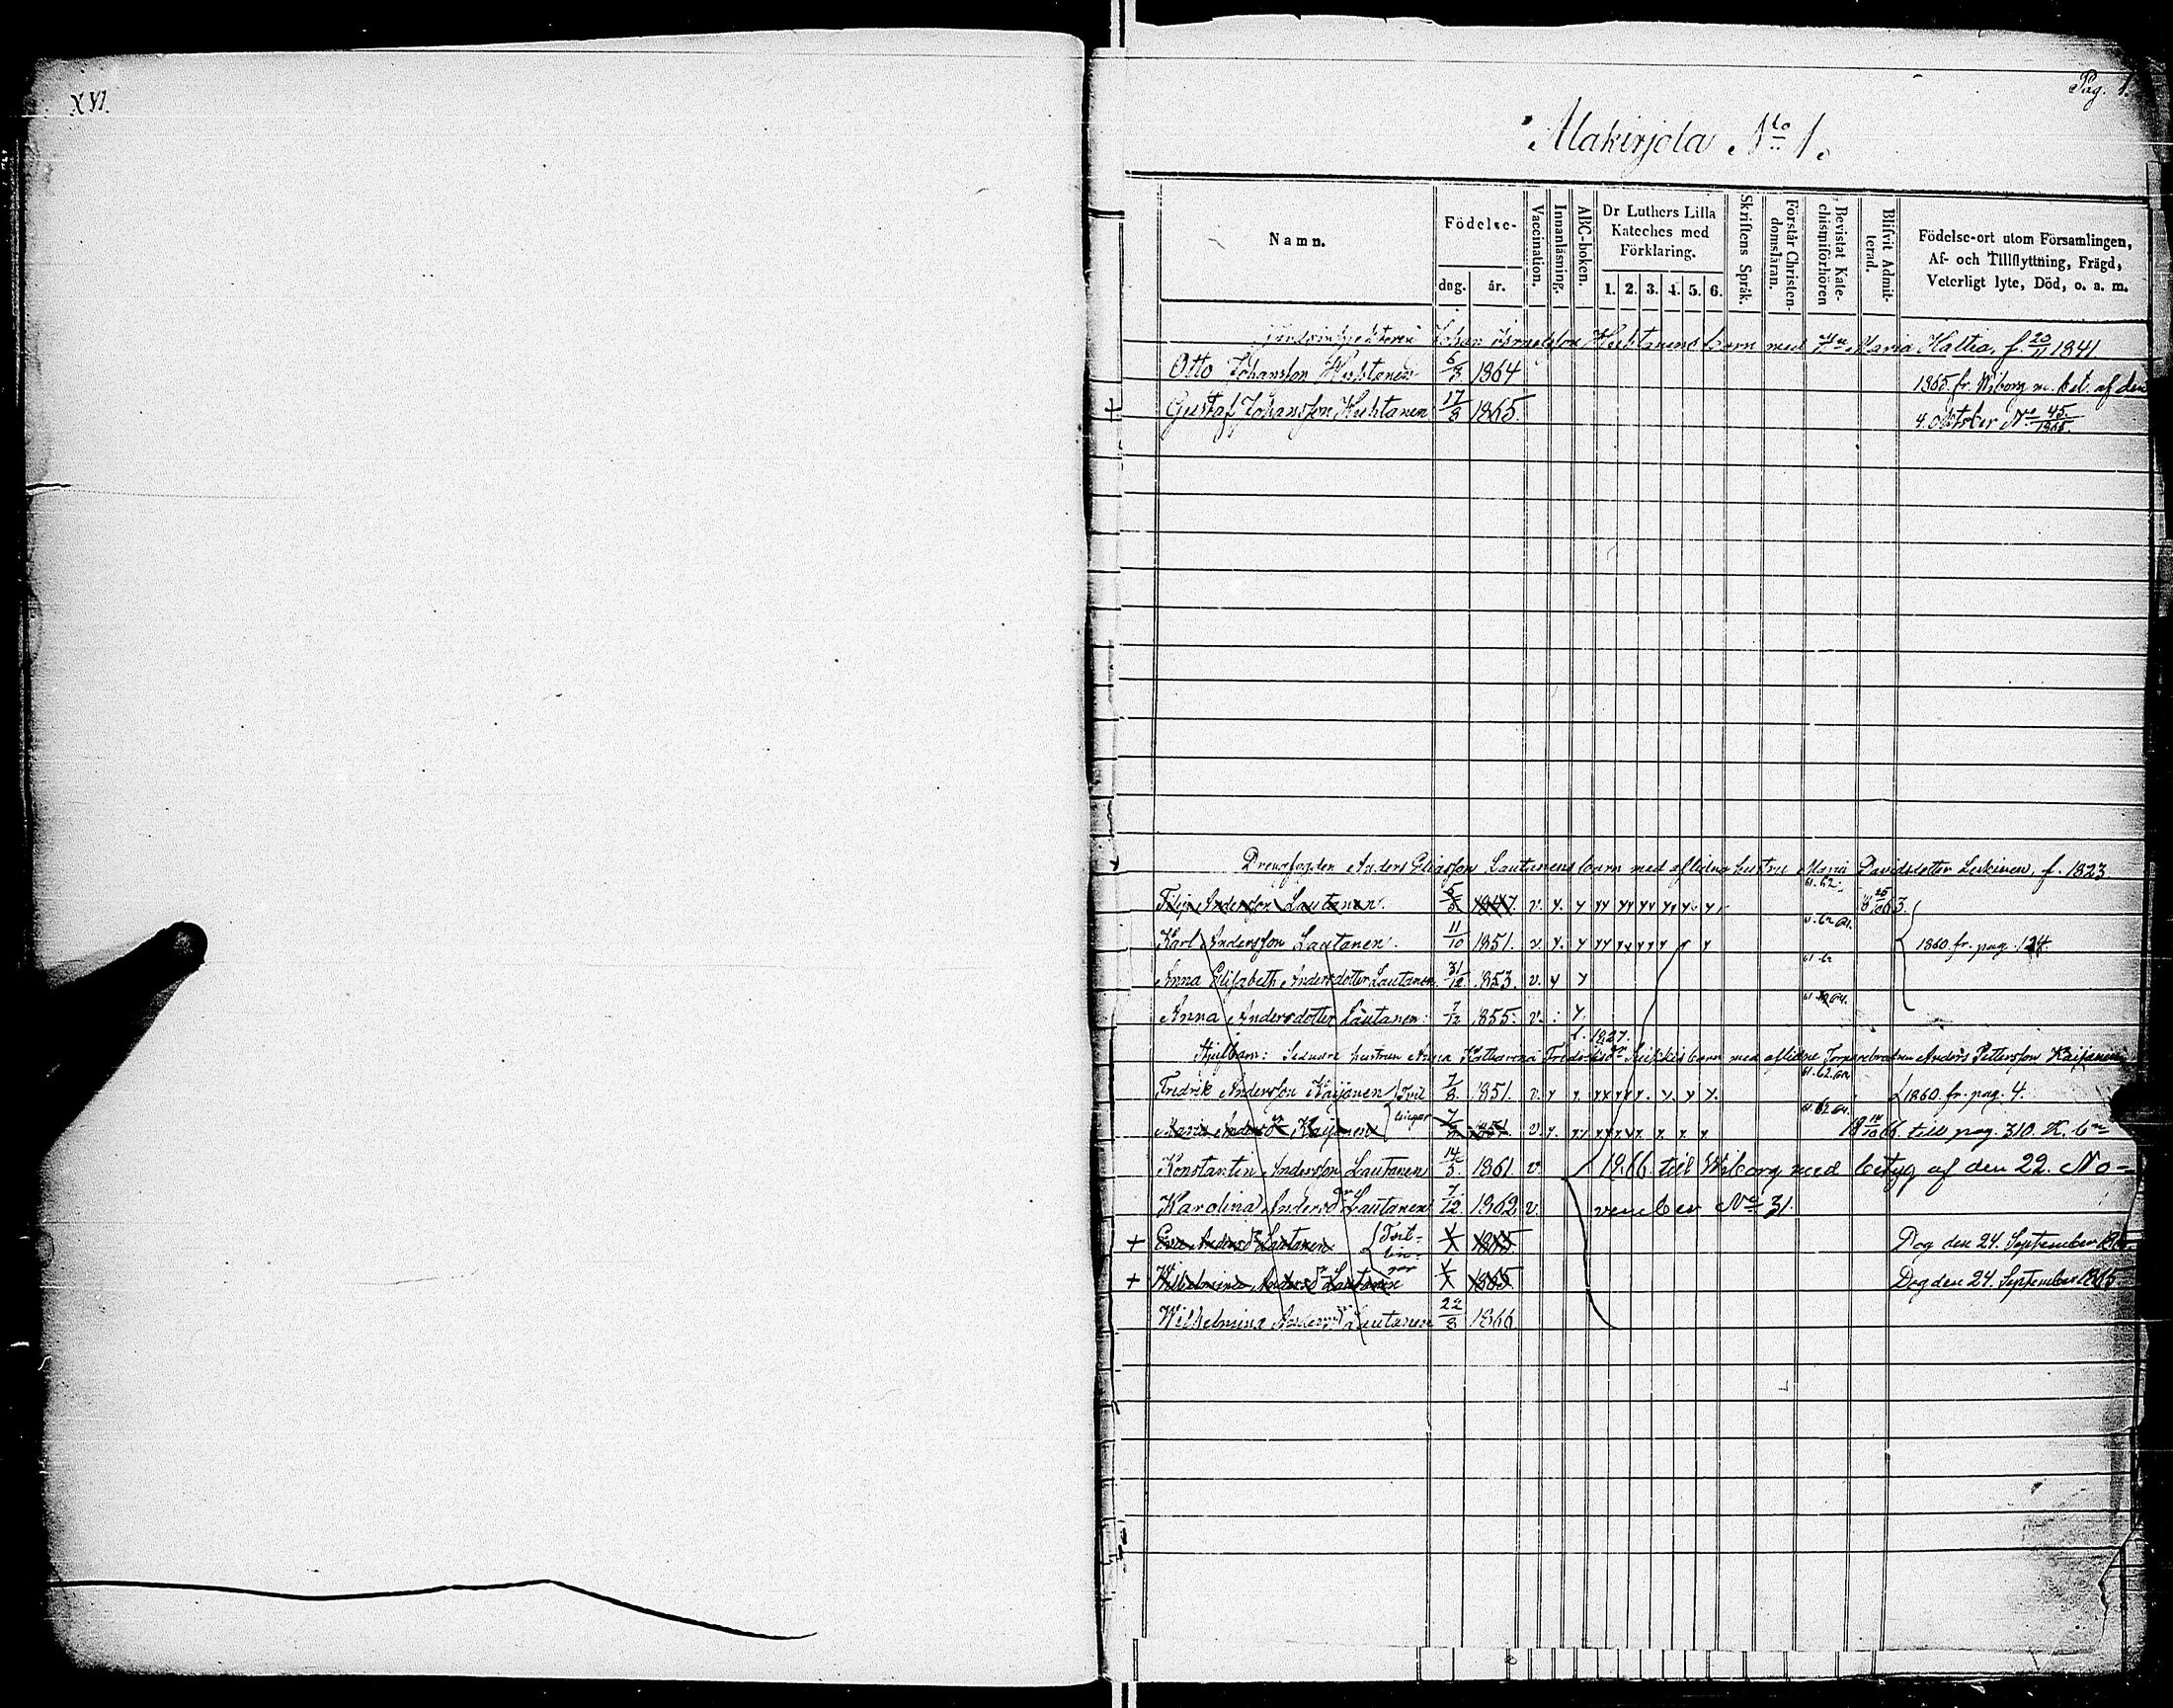 XVI.
Pag. 1.
Alakirjola No 1.
Namn.
Födelse-
dag.
år.
Vaccination.
Innanläsning.
ABC-boken.
Dr Luthers Lilla Kateches med Förklaring.
1. 2. 3. 4. 5. 6.
Skriftens Språk.
Förstår Christendomsläran.
Bevistat Katechismiförhören
Blifvit Admitterad.
Födelse-ort utom Församlingen, Af- och Tillflyttning, Frägd, Veterligt lyte, Död, o. a. m.
Johan barn med Maria Hattia, f. 20/11 1841
Otto Johansson 5/3 1864 1865 fr. Wiborg m. bet. af den
+ Gustaf Johansson 17/8 1865. 4. October No 45/1865.
Drengfogden Anders Eliasson Lautanens barn med aflidna hustru Maria Davidsdotter Leskinen, f. 1823
Filip Andersson Lautanen. 5/5 1847. v. y. y yy yy yy yy y. y. 61.62.
Karl Andersson Lautanen. 11/10 1851. v. y. y yy yy yy y y 1860 fr. pag. 124.
Anna Elisabeth Andersdotter Lautanen. 31/12 1853. v. y y 61.62
Anna Andersdotter Lautanen. 7/12 1855. v. : y. 61.62.64.
f. 1827.
Styfbarn: Senare hustrun Anna Katharina barn med aflidne Anders Pettersson Kaijanen
Fredrik Andersson Kaijanen Tvil- 7/8 1851. v. y y. 61.62.64. 1860 fr. pag. 4.
Maria Andersdr Kaijanen lingar 7/8 1851. v. y. 61.62.64. 18 14/10 66 till pag. 310.
Konstantin Andersson Lautanen 14/5 1861. v. 1866 till Wiborg med betyg af den 22. No-
Karolina Andersdr Lautanen 7/12 1862 v. vember No 31.
+ Eva Andersdr Lautanen Tvil- 1865 Dog den 24. September 1865.
+ Wilhelmina Andersdr Lautanen lin-gar 1865 Dog den 24. September 1865.
Wilhelmina Andersdr Lautanen 22/8 1866